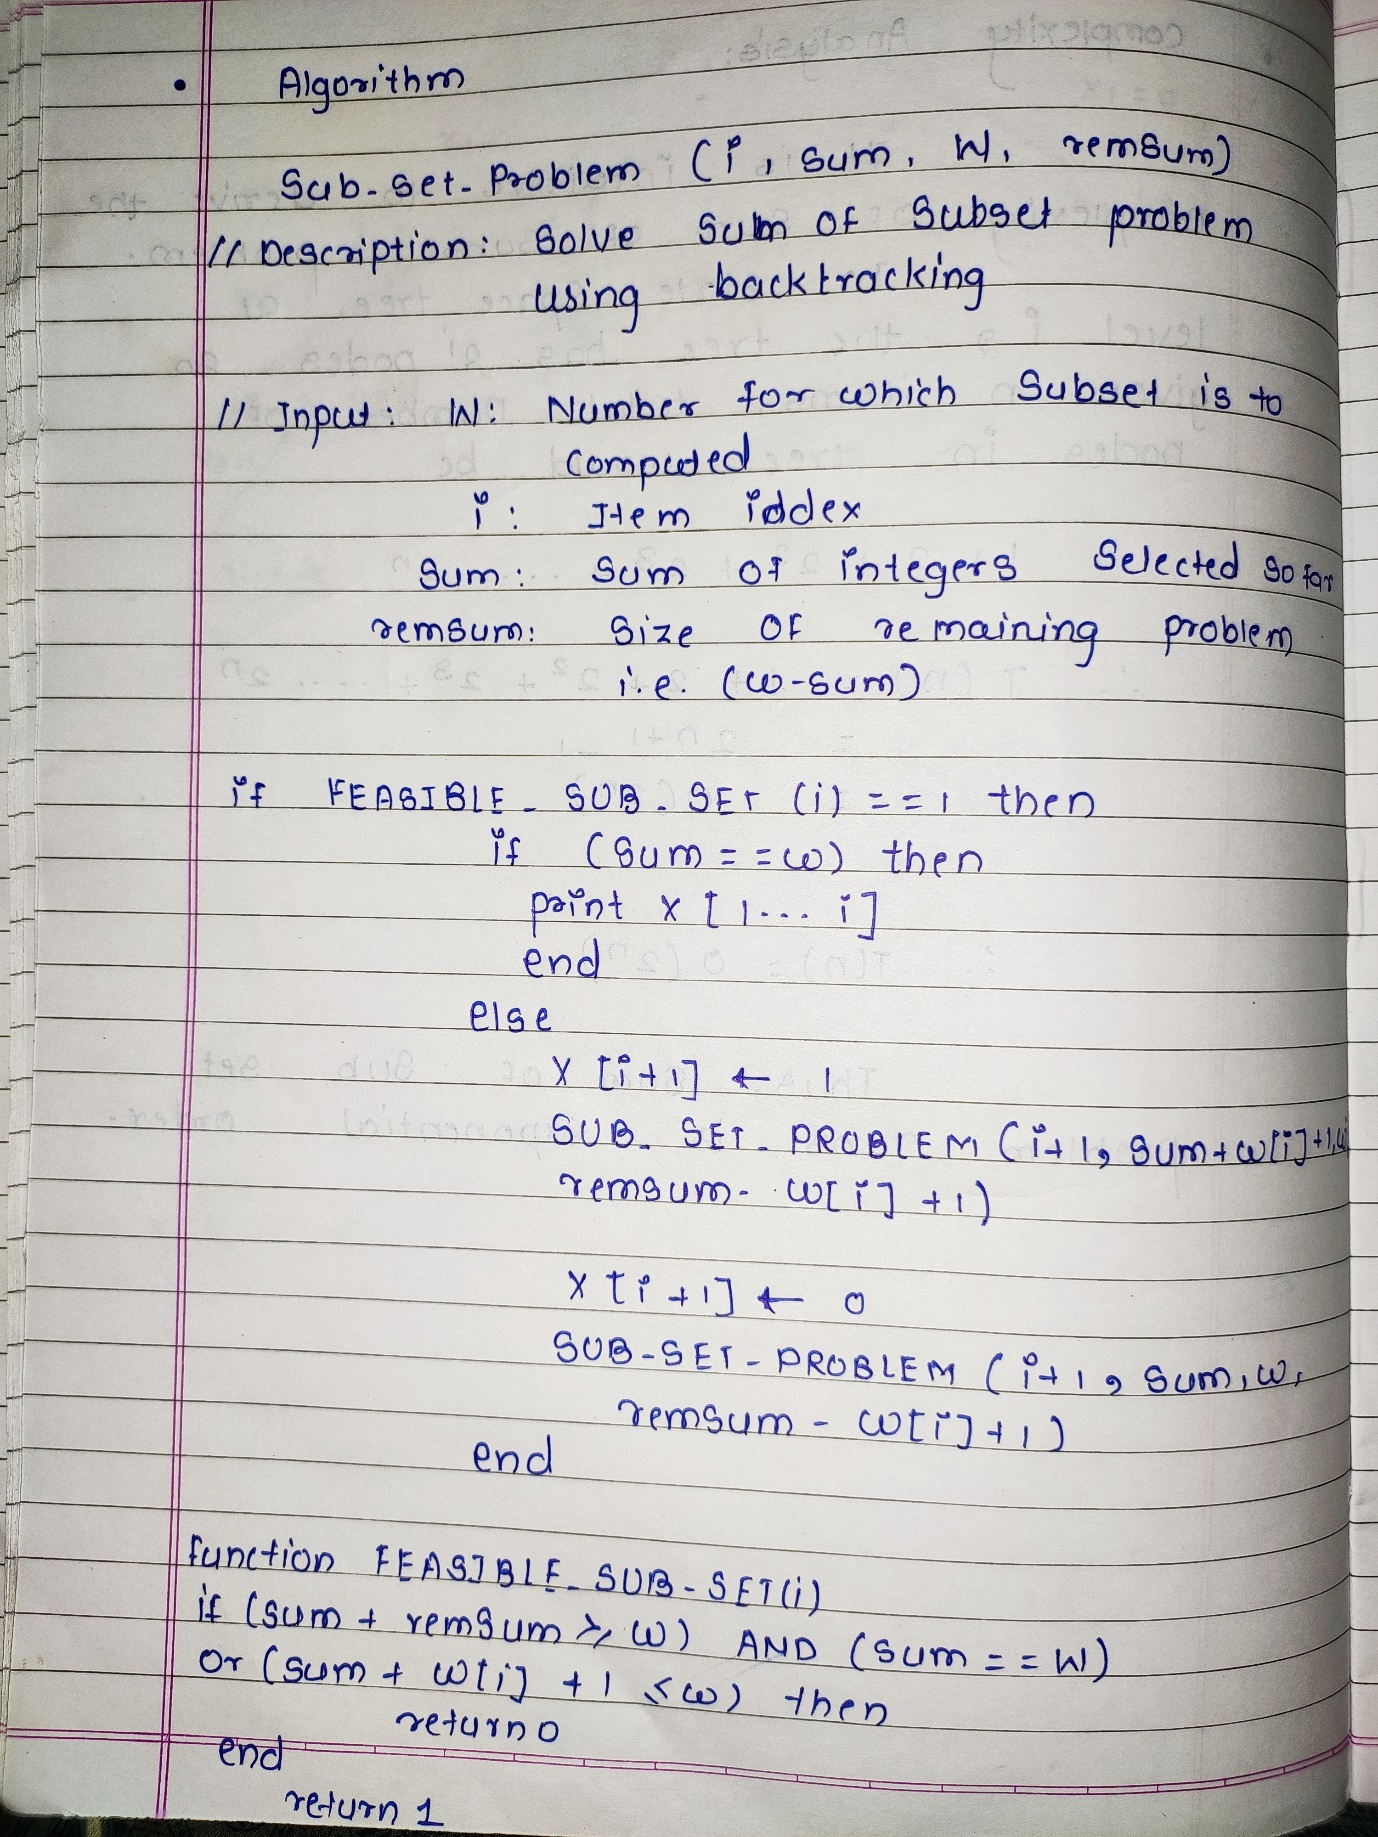 • Algorithm
Sub-set-Problem (i, sum, W, remsum)
// Description: Solve sum of subset problem
using backtracking
// Input: W: Number for which subset is to
computed
i: Item iddex
Sum: Sum of integers Selected so far
remsum: Size of remaining problem
i.e. (w-sum)
if FEASIBLE_SUB-SET (i) == 1 then
if (sum == w) then
print x [1... i]
end
else
X [i+1] ← 1
SUB_SET_PROBLEM (i+1, sum+w[i]+1,w
remsum- w[i] +1)
X [i+1] ← 0
SUB-SET-PROBLEM (i+1, sum, w,
remsum - w[i]+1)
end
function FEASIBLE_SUB-SET(i)
if (sum + remsum ≥ w) AND (sum == W)
or (sum + w[i] +1 ≤ w) then
return 0
end
return 1